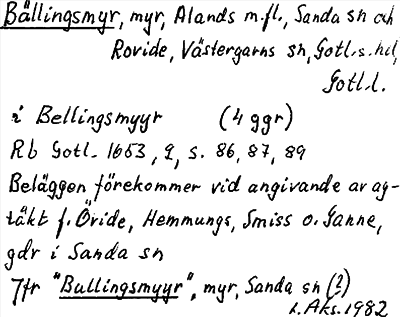 Bällingsmyr, myr, Alands m.fl., Sanda sn och
Rovide, Västergarns sn, Gotl.s. hd,
Gotl.l.
i Bellingsmyyr (4 ggr)
Rb Gotl. 1653, 2, s. 86, 87, 89
Beläggen förekommer vid angivande av ag-
täkt f. Övide, Hemmungs, Smiss o. Ganne,
gdr i Sanda sn
Jfr "Bullingsmyyr", myr, Sanda sn (?)
I. Aks. 1982